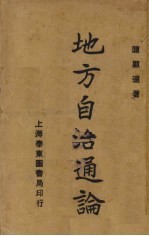 陳顧遠著
地方自治通論
上海泰東圖書局印行